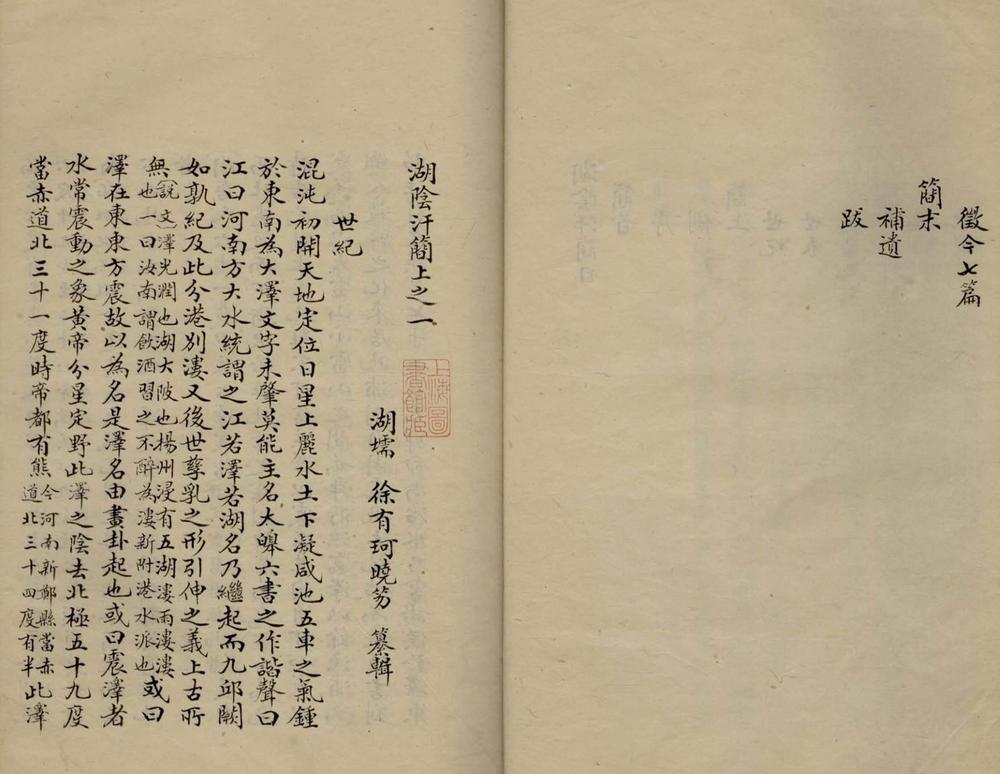 徵今七篇
簡末
補遺
跋
湖陰汗簡上之一
上海圖書館藏
湖壖 徐有珂曉芴 纂輯
世紀
混沌初開天地定位日星上麗水土下凝咸池五車之氣鍾
於東南為大澤文字未肇莫能主名太皞六書之作諧聲曰
江曰河南方大水統謂之江若澤若湖名乃繼起而九邱闕
如孰紀及此分港別漊又後世孳乳之形引伸之義上古所
無說文澤光潤也湖大陂也揚州浸有五湖漊雨漊漊
也一曰汝南謂飲酒習之不醉為漊新附港水派也或曰
澤在東東方震故以為名是澤名由畫卦起也或曰震澤者
水常震動之象黃帝分星定野此澤之陰去北極五十九度
當赤道北三十一度時帝都有熊今河南新鄭縣當赤
道北三十四度有半此澤